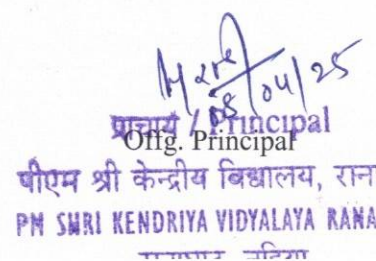 08/04/25
प्राचार्य / Principal
Offg. Principal
पीएम श्री केन्द्रीय विद्यालय, राना
PM SHRI KENDRIYA VIDYALAYA RANA